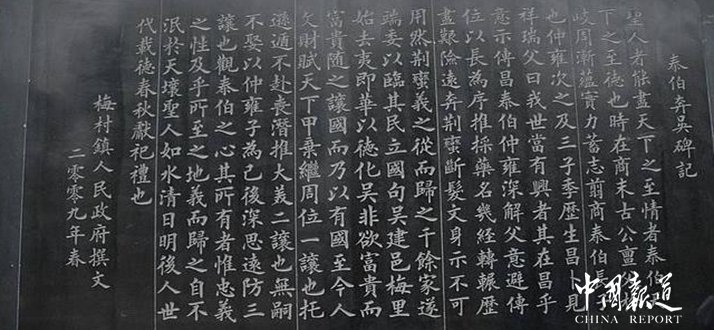 泰伯奔吴碑記
聖人者能盡天下之至情者泰伯
下之至德也時在商末古公亶
岐周漸藴實力蓄志翦商泰伯長
也仲雍次之及三子季歷生昌卜見
祥瑞父曰我世當有興者其在昌乎
意示傳昌泰伯仲雍深解父意避傳
位以長為序推採藥名幾經轉輾歷
盡艱險遠奔荆蠻斷髮文身示不可
用然荆蠻義之從而歸之千餘家遂
端委以臨其民立國句吴建邑梅里
始去夷即華以德化吴非欲富貴而
富貴隨之讓國而乃以有國至今人
文財賦天下甲棄繼周位一讓也托
遜遁不赴喪潛推大義二讓也無嗣
不娶以仲雍子為己後深思遠防三
讓也觀泰伯之心其所有者惟忠義
之性及乎所至之地義而歸之自不
泯於天壤聖人如水清日明後人世
代載德春秋獻祀禮也
梅村鎮人民政府撰文
二零零九年春
中國報道
CHINA REPORT